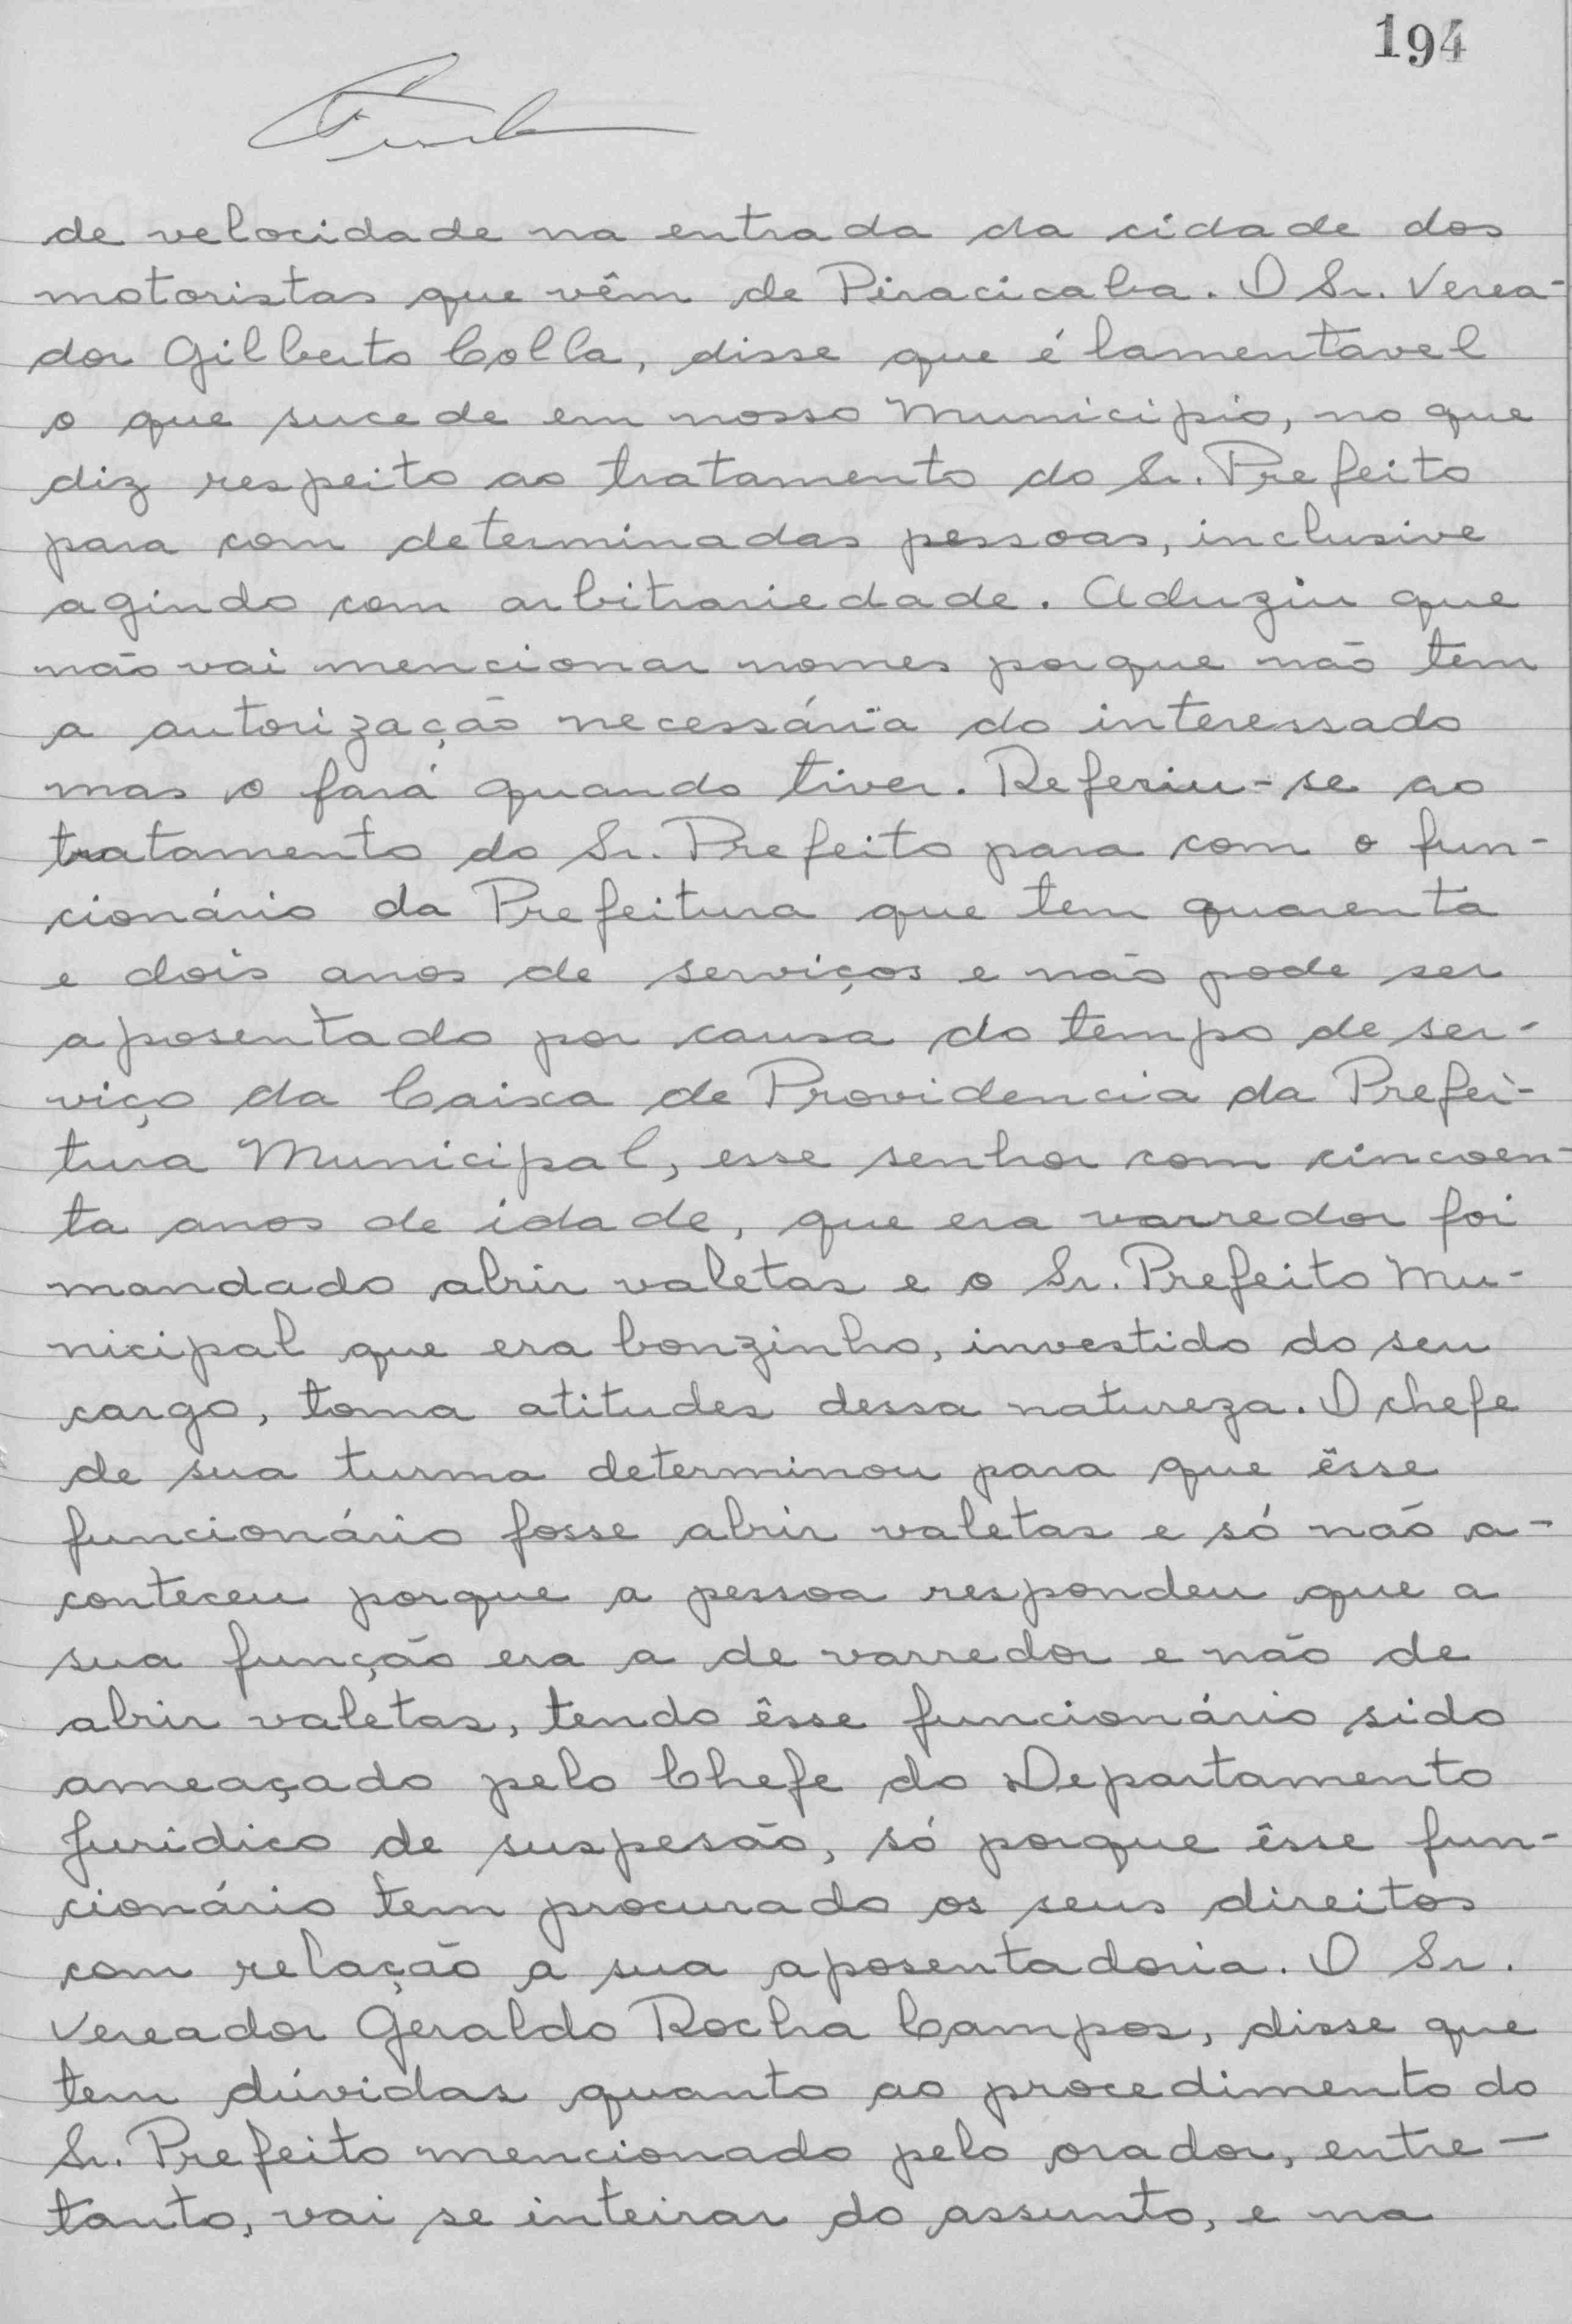 194
de velocidade na entrada da cidade dos
motoristas que vêm de Piracicaba. O Sr. Verea-
dor Gilberto Colla, disse que é lamentavel
o que sucede em nosso Municipio, no que
diz respeito ao tratamento do Sr. Prefeito
para com determinadas pessoas, inclusive
agindo com arbitrariedade. Aduziu que
não vai mencionar nomes porque não tem
a autorização necessária do interessado
mas o fará quando tiver. Referiu-se ao
tratamento do Sr. Prefeito para com o fun-
cionário da Prefeitura que tem quarenta
e dois anos de serviços e não pode ser
aposentado por causa do tempo de ser-
viço da Caixa de Providencia da Prefei-
tura Municipal, esse senhor com cincoen-
ta anos de idade, que era varredor foi
mandado abrir valetas e o Sr. Prefeito Mu-
nicipal que era bonzinho, investido do seu
cargo, toma atitudes dessa natureza. O chefe
de sua turma determinou para que êsse
funcionário fosse abrir valetas e só não a-
conteceu porque a pessoa respondeu que a
sua função era a de varredor e não de
abrir valetas, tendo êsse funcionário sido
ameaçado pelo Chefe do Departamento
Juridico de suspesão, só porque êsse fun-
cionário tem procurado os seus direitos
com relação a sua aposentadoria. O Sr.
Vereador Geraldo Rocha Campos, disse que
tem dúvidas quanto ao procedimento do
Sr. Prefeito mencionado pelo orador, entre-
tanto, vai se inteirar do assunto, e na